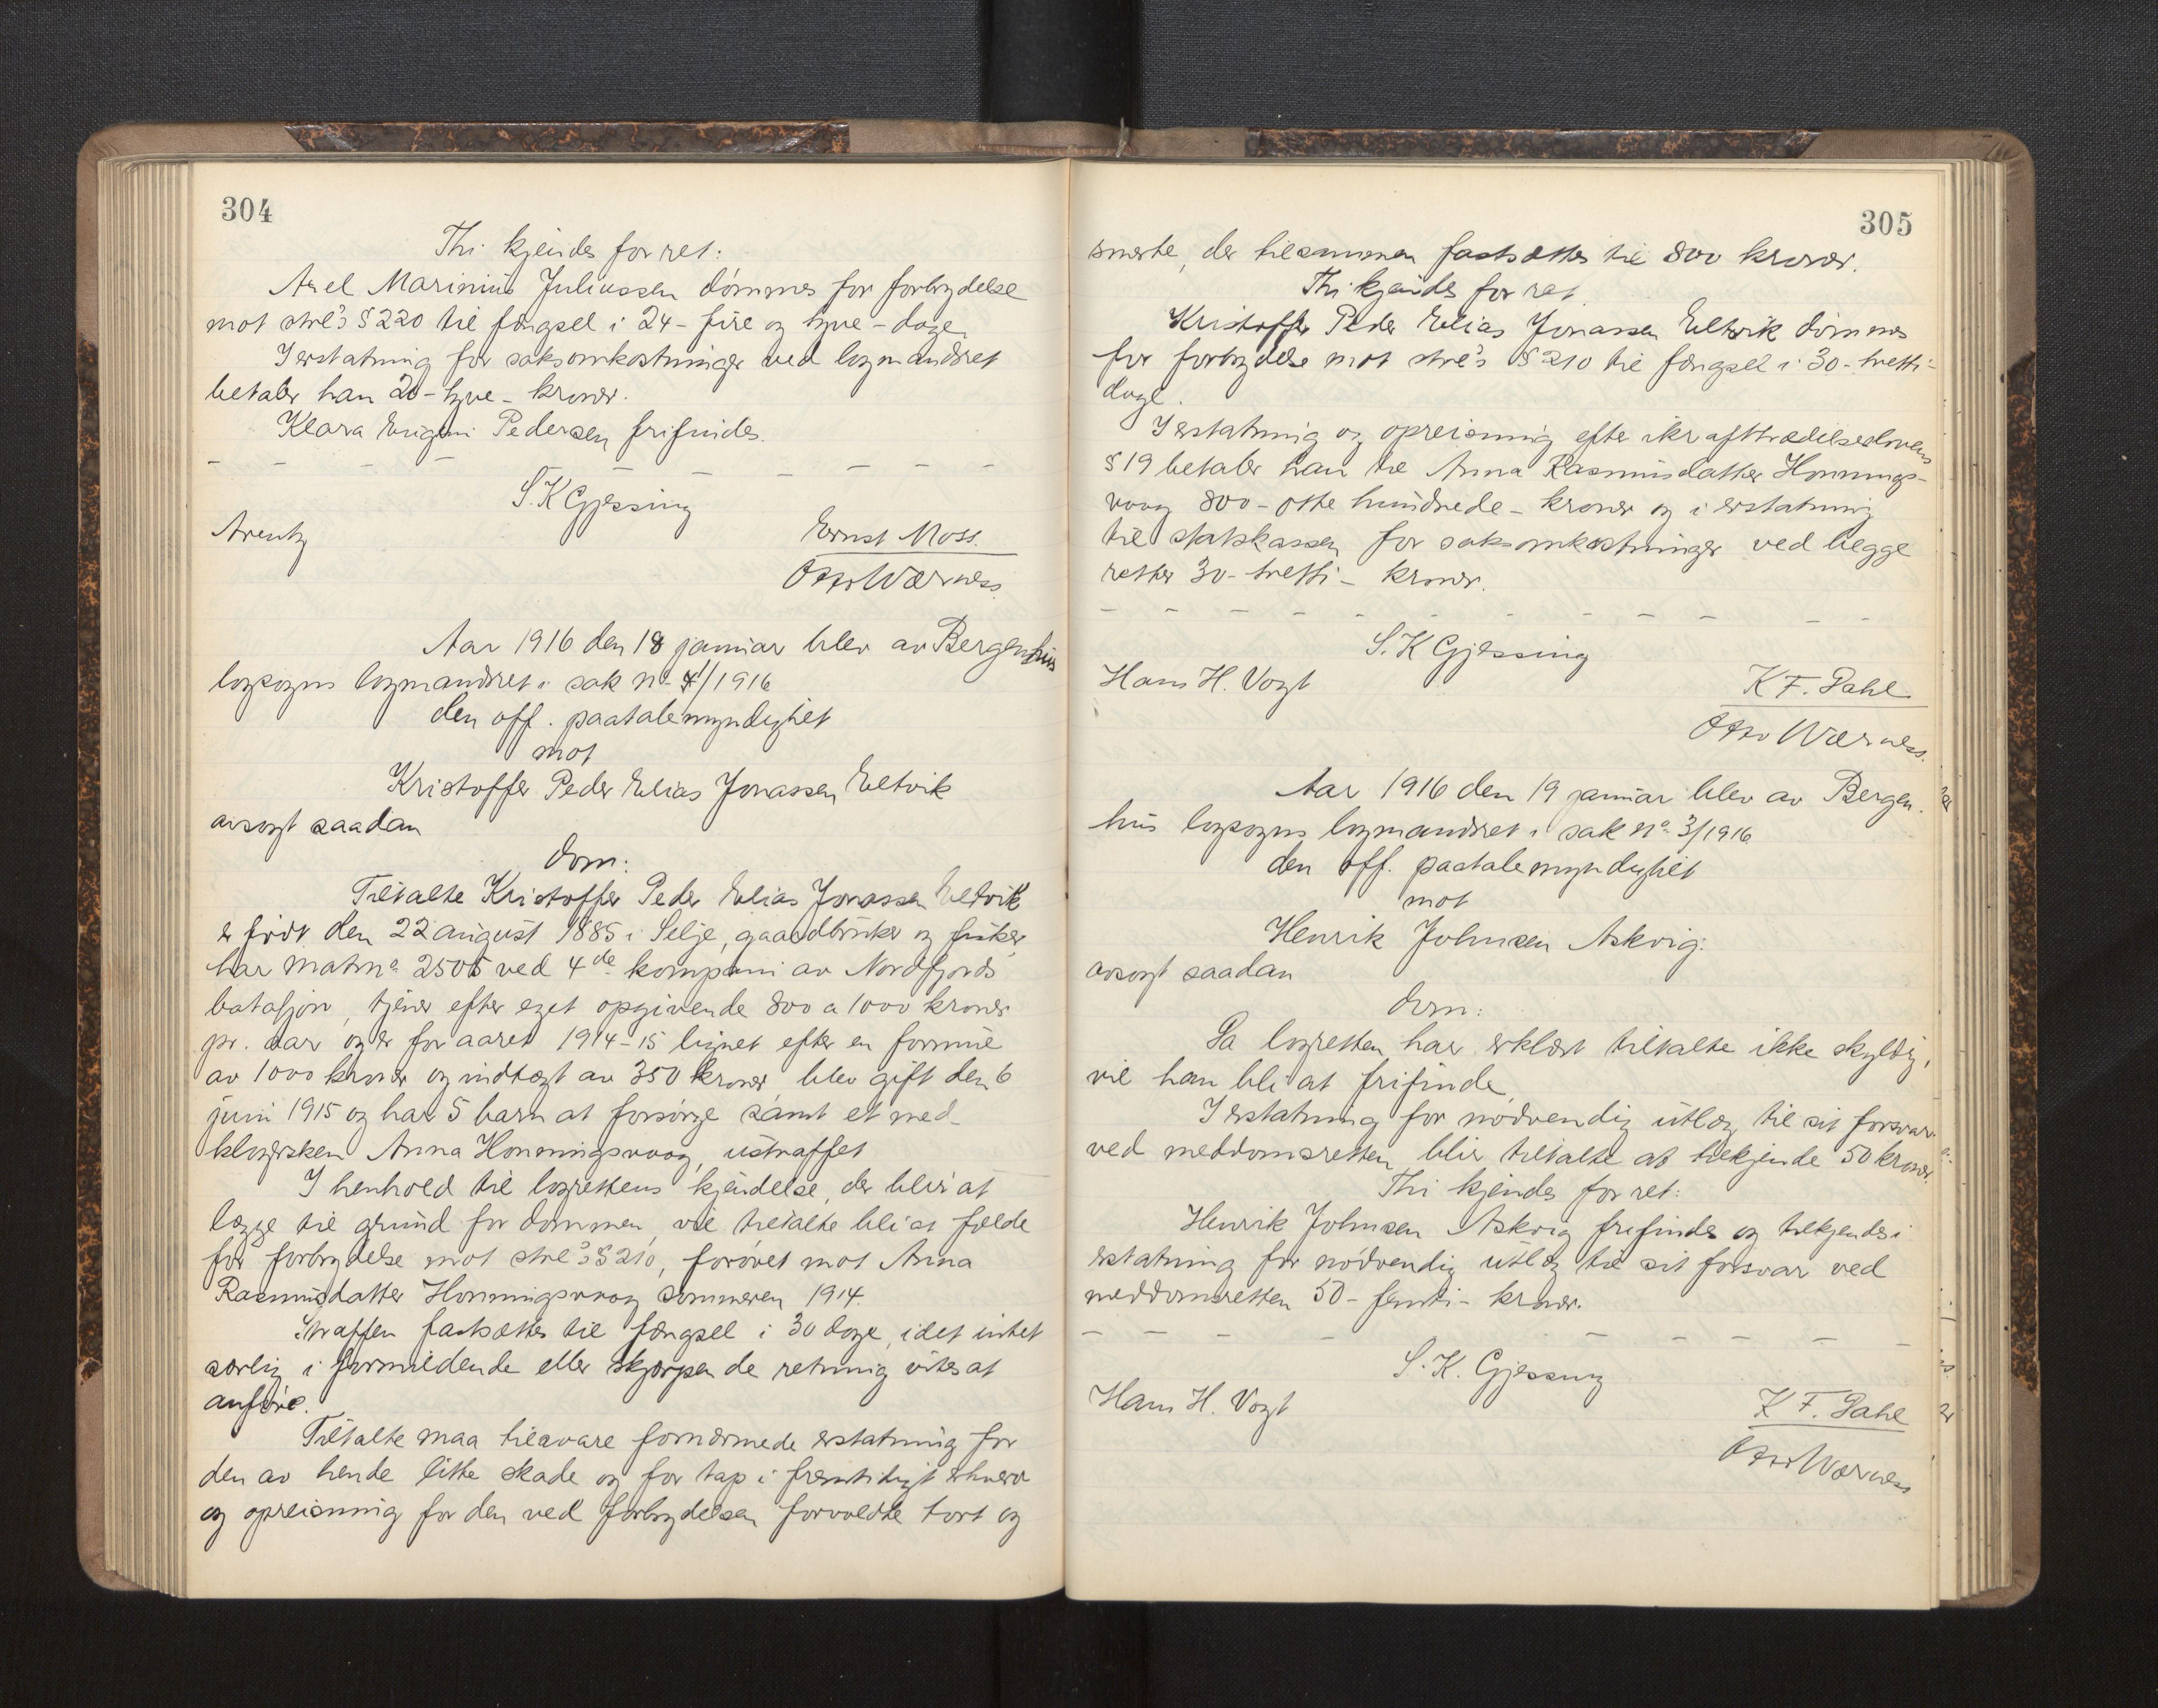 304
Thi kjendes for ret:
Axel Marinius Juliussen dømmes for forbrydelse
mot strl's § 220 til fængsel i 24 - fire og tyve - dage.
I erstatning for saksomkostninger ved lagmandsret
betaler han 20 - tyve - kroner.
Klara Eugeni Pedersen frifindes.
S. K Gjessing
Arentz
Ernst Moss.
Otto Wærness.
Aar 1916 den 18 januar blev av Bergenhus
lagsogns lagmandsret i sak no 4/1916
den off. paatalemyndighet
mot
Kristoffer Peder Elias Jonassen Eltvik
avsagt saadan
dom:
Tiltalte Kristoffer Peder Elias Jonassen Eltvik
er født den 22 august 1885 i Selje, gaardbruker og fisker,
har matrno 2505 ved 4de kompani av Nordfjords
bataljon, tjener efter eget opgivende 800 a 1000 kroner
pr. aar og er for aaret 1914-15 lignet efter en formue
av 1000 kroner og indtægt av 350 kroner blev gift den 6
juni 1915 og har 5 barn at forsørge samt et med
klagersken Anna Honningsvaag, ustraffet
I henhold til lagrettens kjendelse, der blir at
lægge til grund for dommen, vil tiltalte bli at fælde
for forbrydelse mot strl's § 210, forøvet mot Anna
Rasmusdatter Honningsvaag sommeren 1914.
Straffen fastsættes til fængsel i 30 dage, idet intet
særlig i formildende eller skjærpende retning vites at
anføre.
Tiltalte maa tilsvare fornærmede erstatning for
den av hende litte skade og for tap i fremtidigt erhverv
og opreisning for den ved forbrydelsen forvoldte tort og
305
smerte, der tilsammen fastsættes til 800 kroner.
Thi kjendes for ret.
Kristoffer Peder Elias Jonassen Eltvik dømmes
for forbrydelse mot strl's § 210 til fængsel i 30 - tretti -
dage.
I erstatning og opreisning efter ikrafttrædelseslovens
§ 19 betaler han til Anna Rasmusdatter Honnings-
vaag 800 - otte hundrede - kroner og i erstatning
til statskassen for saksomkostninger ved begge
retter 30 - tretti - kroner.
S. K Gjessing
Hans H. Vogt
K F. Dahl
Otto Wærness.
Aar 1916 den 19 januar blev av Bergen-
hus lagsogns lagmandsret i sak no 3/1916
den off. paatalemyndighet
mot
Henrik Johnsen Askvig.
avsagt saadan
dom:
Da lagretten har erklært tiltalte ikke skyldig,
vil han bli at frifinde.
I erstatning for nødvendig utlæg til sit forsvar
ved meddomsretten blir tiltalte at tilkjende 50 kroner.
Thi kjendes for ret:
Henrik Johnsen Askvig frifindes og tilkjendes i
erstatning for nødvendig utlæg til sit forsvar ved
meddomsretten 50 - femti - kroner.
S. K. Gjessing
Hans H. Vogt
K F. Dahl
Otto Wærness